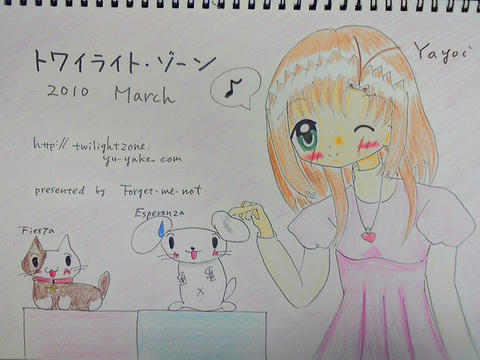 トワイライト・ゾーン
2010 March
Yayoi
http://twilightzone.
yu-yake.com
presented by Forget-me-not
Esperanza
Fiesta